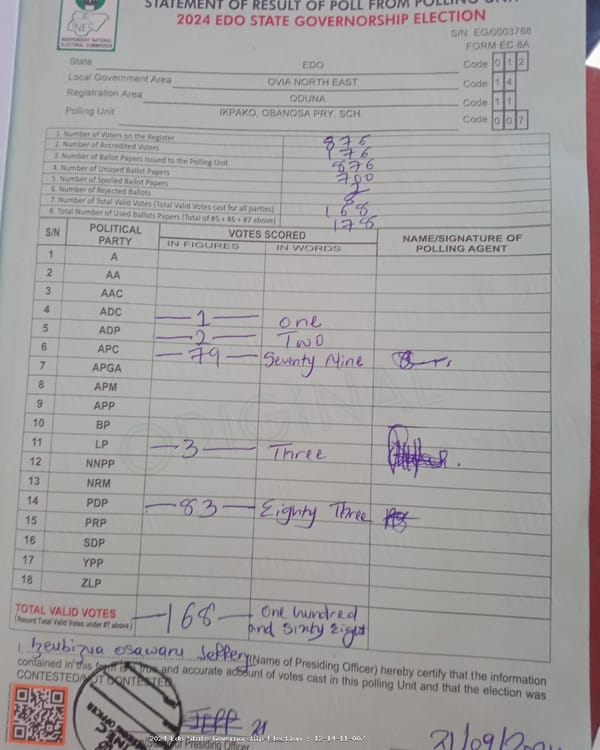 STATEMENT OF RESULT OF POLL FROM POLLING UNIT
2024 EDO STATE GOVERNORSHIP ELECTION
INEC
INDEPENDENT NATIONAL ELECTORAL COMMISSION
S/N: EG/0003788
FORM EC 8A
State EDO Code 0 1 2
Local Government Area OVIA NORTH EAST Code 1 4
Registration Area ODUNA Code 1 1
Polling Unit IKPAKO, OBANOSA PRY. SCH. Code 0 0 7
1. Number of Voters on the Register 876
2. Number of Accredited Voters 176
3. Number of Ballot Papers Issued to the Polling Unit 876
4. Number of Unused Ballot Papers 700
5. Number of Spoiled Ballot Papers 2
6. Number of Rejected Ballots 8
7. Number of Total Valid Votes (Total Valid Votes cast for all parties) 168
8. Total Number of Used Ballots Papers (Total of #5 + #6 + #7 above) 178
S/N POLITICAL PARTY VOTES SCORED NAME/SIGNATURE OF POLLING AGENT
IN FIGURES IN WORDS
1 A
2 AA
3 AAC
4 ADC 1 One
5 ADP 2 Two
6 APC 79 Seventy Nine
7 APGA
8 APM
9 APP
10 BP
11 LP 3 Three
12 NNPP
13 NRM
14 PDP 83 Eighty Three
15 PRP
16 SDP
17 YPP
18 ZLP
ORIGINAL
TOTAL VALID VOTES 168 One hundred and Sixty Eight
(Record Total Valid Votes under #7 above)
I, Izeubizua Osawaru Jeffery (Name of Presiding Officer) hereby certify that the information
contained in this form is a true and accurate account of votes cast in this polling Unit and that the election was
CONTESTED/NOT CONTESTED
2024 Edo State Governorship Election : 12-14-11-007
of Presiding Officer